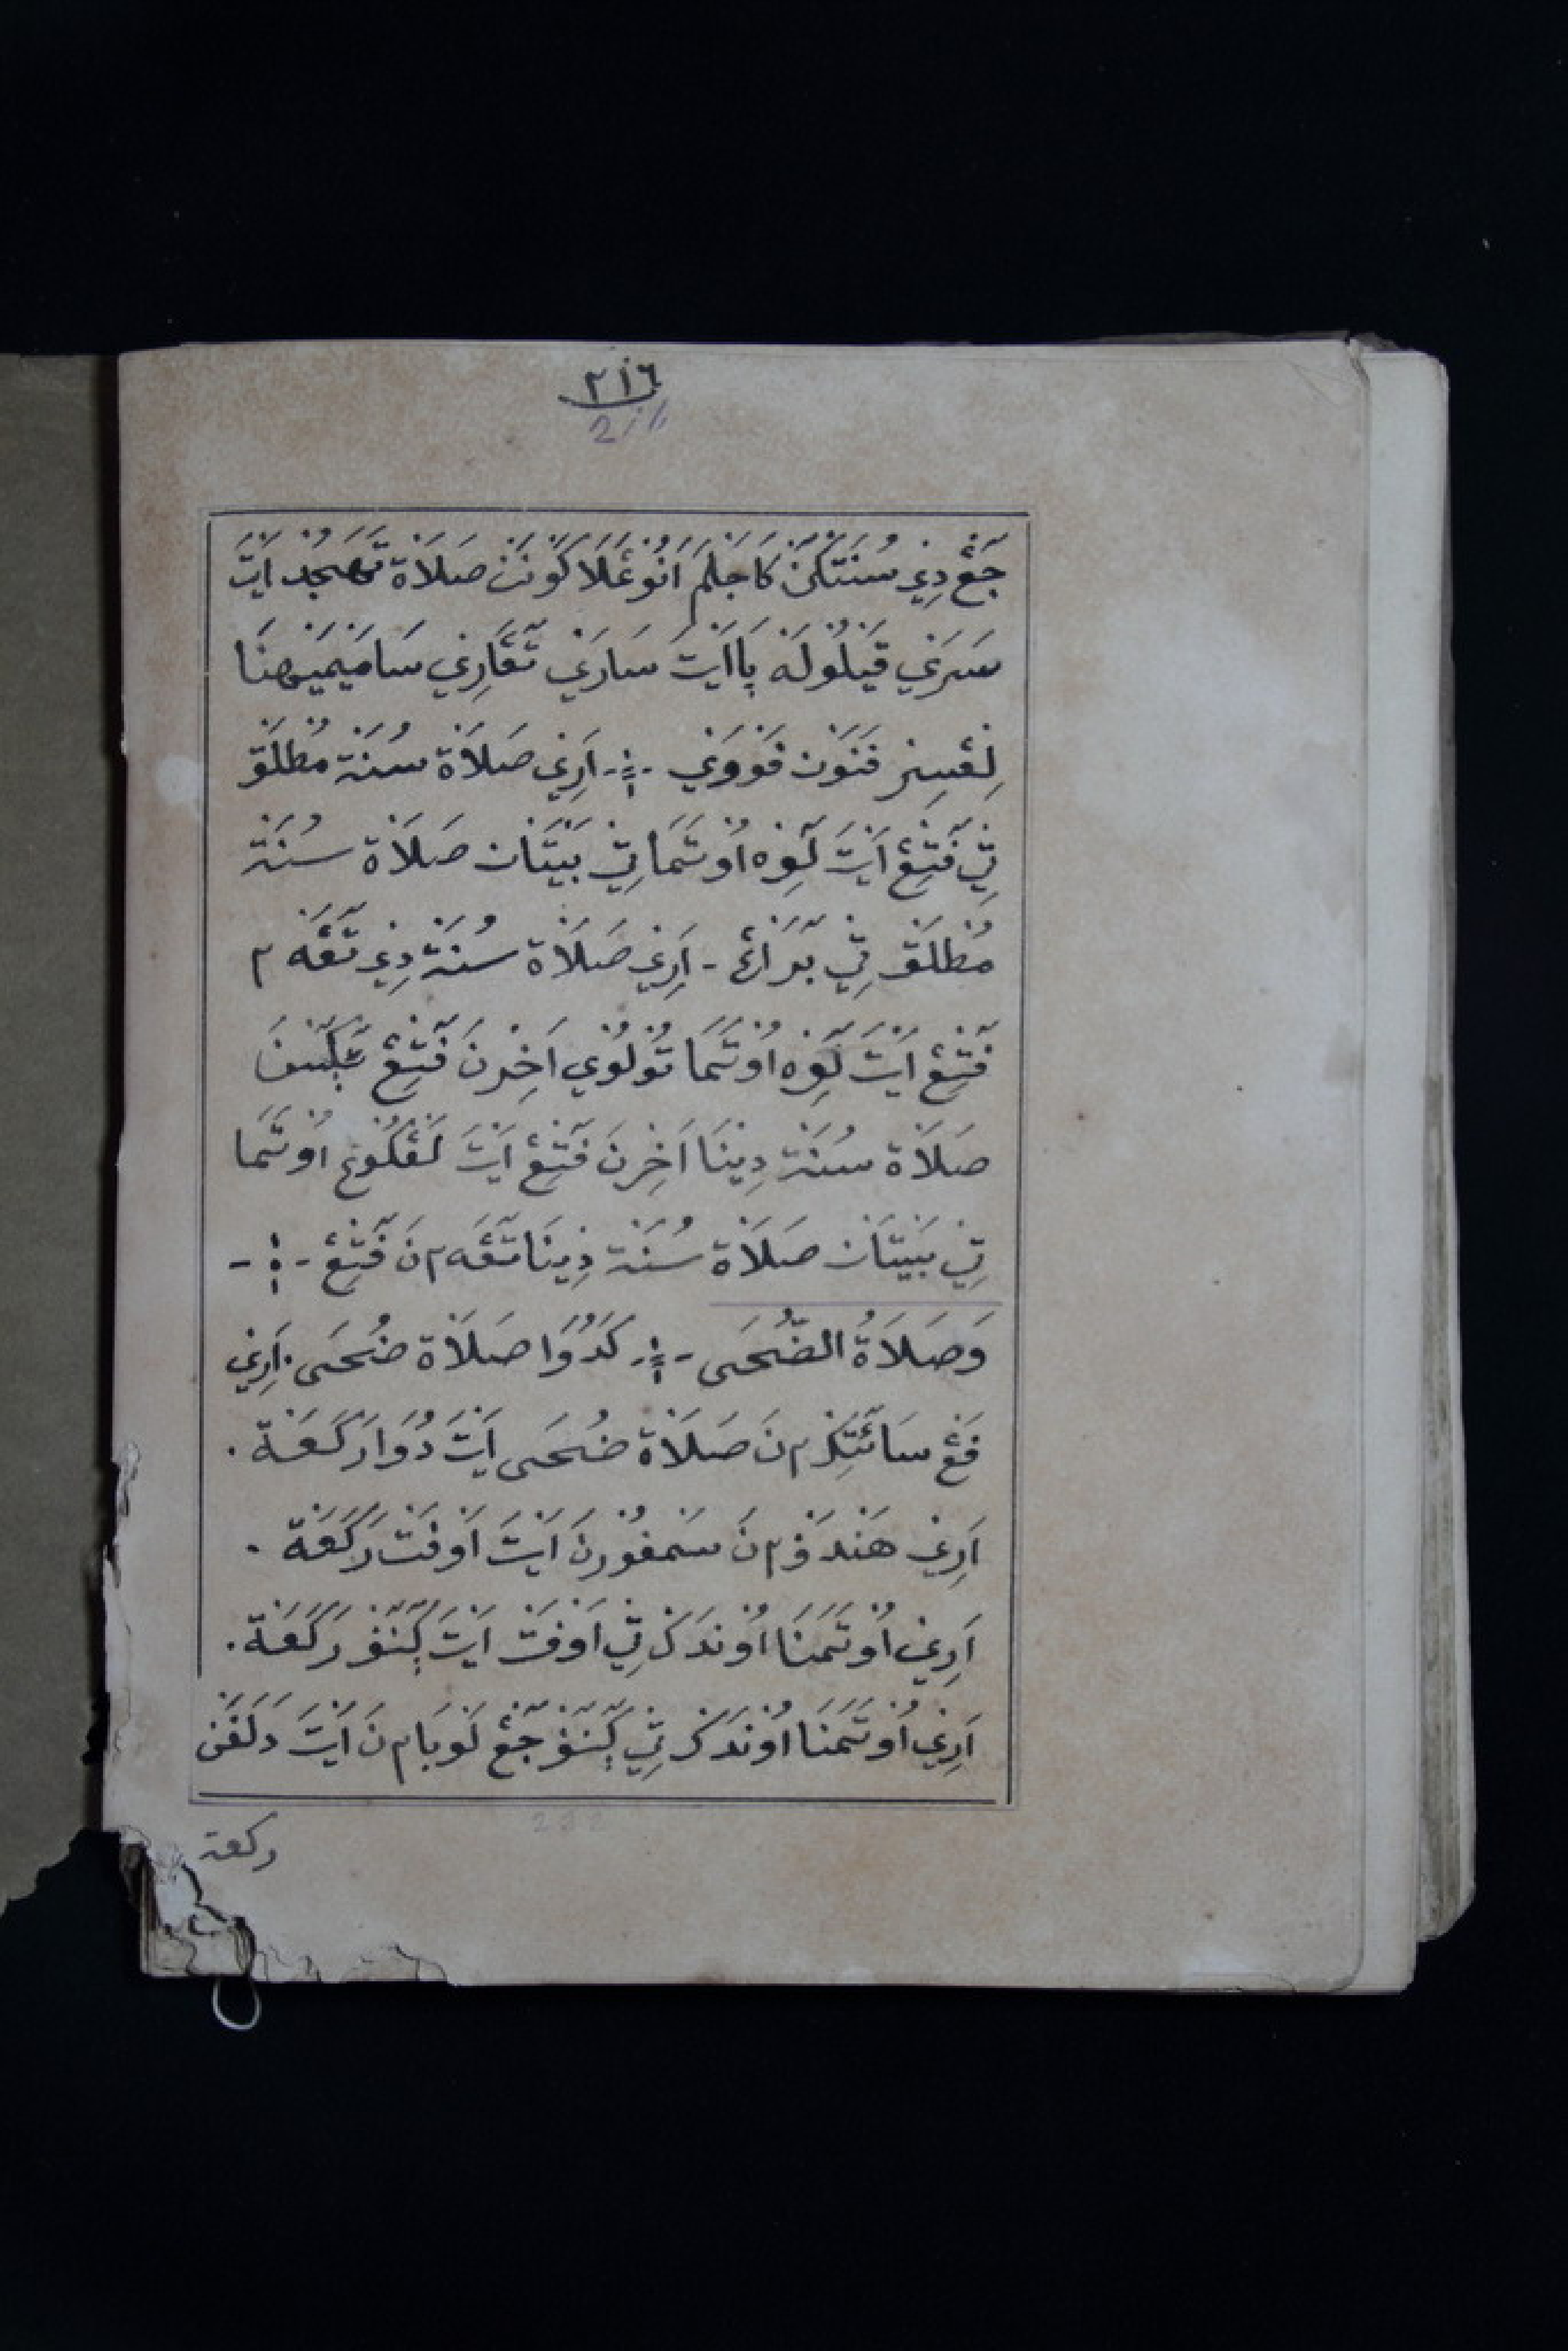 ٢١٦
216
جَڠْ دِيْ سُنَتَكَنْ كَا جَلْمَ اَنُوْ عَلَاكُوْنَنْ صَلَاة تَهَجُد اَيْتَ
سَرَيْ قَيْلُولَة بَا اَيْتَ سَارَيْ
فَنَوْن فَوْوَيْ ۞ اَرِيْ صَلَاة سُنَة مُطْلَق
تِيْ فَتِڠْ اَيْتَ لَوِه اُوْتَمَا تِيْ بَيْتَان صَلَاة سُنَة
مُطْلَق تِيْ بَرَاڠْ - اَرِيْ صَلَاة سُنَة دِيْ تَڠَه ٢
فَتِڠْ اَيْتَ لَوِه اُوْتَمَا تُوْلُوْي اَخِرْنَ فَتِڠْ
صَلَاة سُنَة دِيْنَا اَخِرْنَ فَتِڠْ اَيْتَ لَڠْكُوْڠْ اُوْتَمَا
تِيْ بَيْتَان صَلَاة سُنَة دِيْنَا تَڠَه ٢ نَ فَتِڠْ - ۞ -
وَصَلَاةُ الضُّحَى - ۞ - كَدُوَا صَلَاة ضُحَى. اَرِيْ
فَڠْ سَائَتِكْ ٢ نَ صَلَاة ضُحَى اَيْتَ دُوَا رَكَعَة .
اَرِيْ هَنْدَفْ ٢ نَ سَمْفُوْرنَ اَيْتَ اَوْفَتْ رَكَعَة .
اَرِيْ اُوْتَمَنَا اُوْنْدَكْ تِيْ اَوْفَتْ اَيْتَ ڮَنَفْ رَكَعَة .
اَرِيْ اُوْتَمَنَا اُوْنْدَكْ تِيْ ڮَنَفْ جَڠْ لَوبَا ٢ نَ اَيْتَ دَلَفَنْ
ركعة